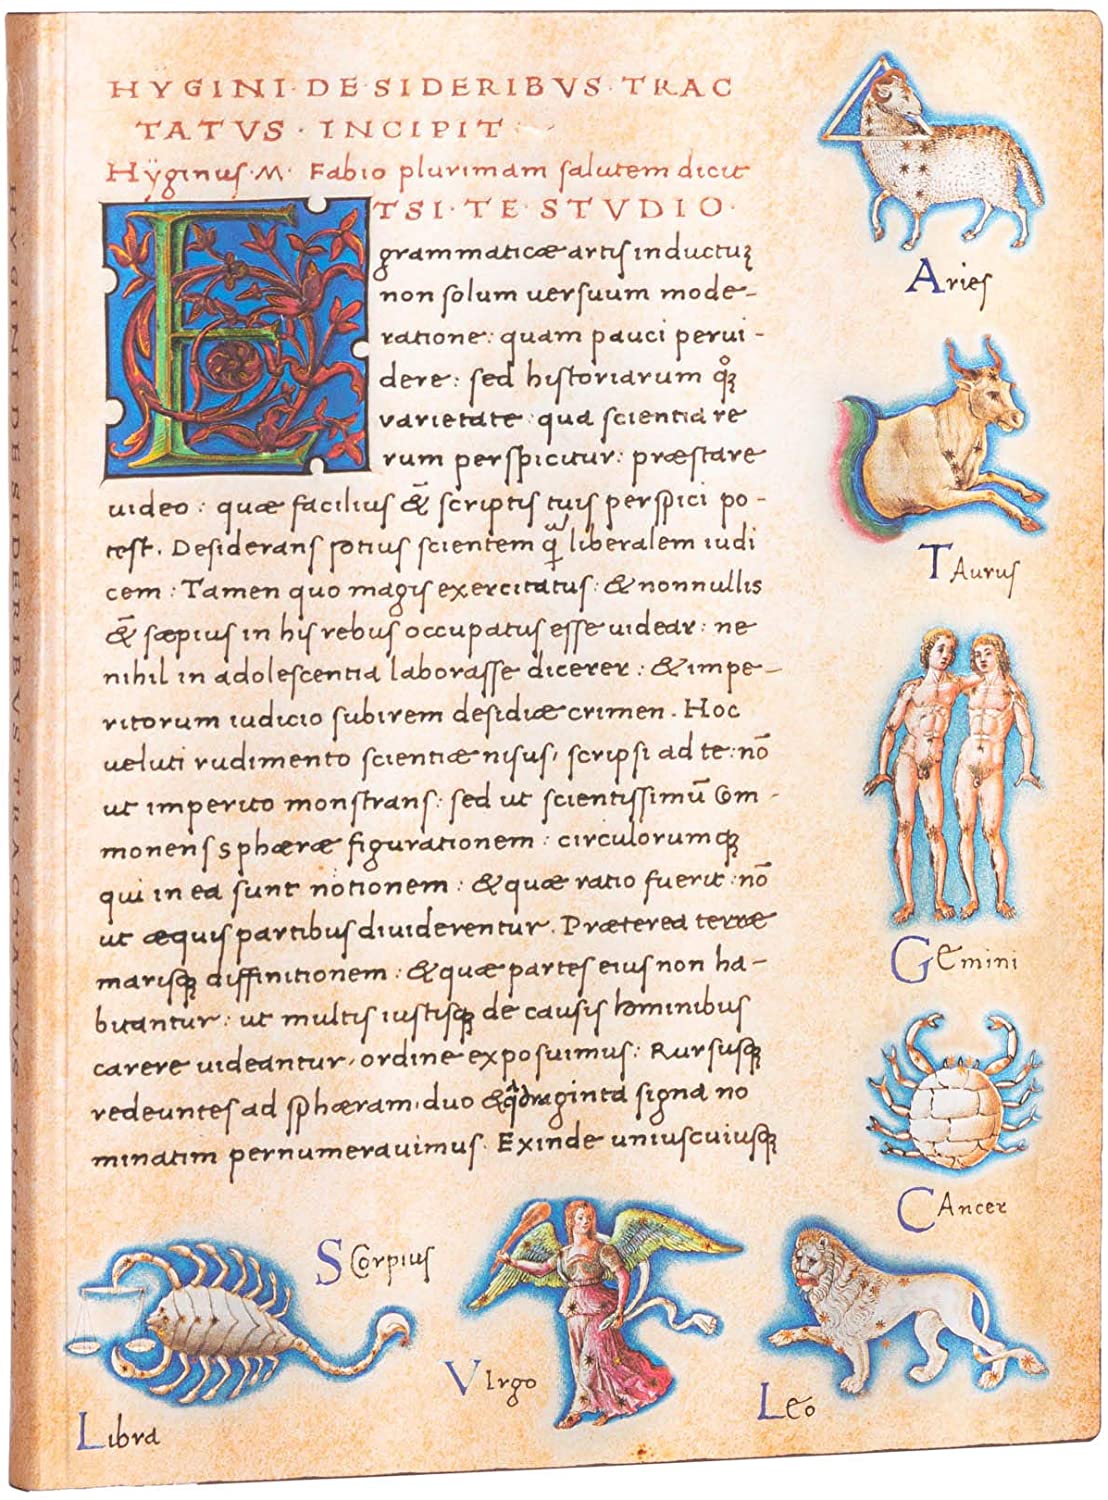 HYGINI·DE·SIDERIBVS·TRAC
TATVS·INCIPIT
Hÿginus·M· Fabio plurimam salutem dicit
ETSI·TE·STVDIO·
grammaticæ artis inductuʒ
non solum uersuum mode-
ratione: quam pauci perui-
dere: sed historiarum qꝫ
varietate: qua scientia re
rum perspicitur: præstare
uideo: quæ facilius & scriptis tuis perspici po-
test. Desiderans potius scientem liberalem iudi
cem: Tamen quo magis exercitatus: & nonnullis
& sæpius in his rebus occupatus esse uidear: ne
nihil in adolescentia laborasse dicerer: & impe-
ritorum iudicio subirem desidiæ crimen. Hoc
ueluti rudimento scientiæ nisus, scripsi ad te: nō
ut imperito monstrans: sed ut scientissimū Com-
monens sphæræ figurationem: circulorumqꝫ
qui in ea sunt notionem: & quæ ratio fuerit: nō
ut æquis partibus diuiderentur. Præterea terræ
marisqꝫ diffinitionem: & quæ partes eius non ha-
bitantur: ut multis iustisqꝫ de causis hominibus
carere uideantur, ordine exposuimus: Rursusqꝫ
redeuntes ad sphæram, duo & signa no
minatim pernumerauimus. Exinde uniuscuiusqꝫ
Aries
TAurus
GEmini
CAncer
LEo
VIrgo
SCorpius
Libra
HYGINI DE SIDERIBVS TRACTATVS INCIPIT